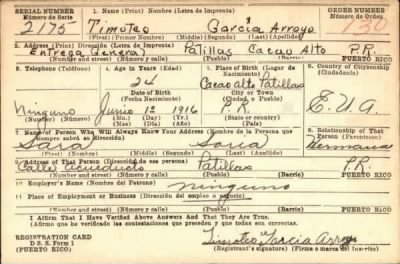 SERIAL NUMBER 1. Name (Print) Nombre (Letra de Imprenta) ORDER NUMBER
Número de Serie Número de Orden
2175 Timoteo García Arroyo 130
(First) (Primer Nombre) (Middle) (Segundo) (Last) (Apellido)
2. Address (Print) Dirección (Letra de Imprenta)
(Entrega General) Patillas Cacao Alto P.R.
(Number and street) (Número y calle) (Town) (Pueblo) (Barrio) PUERTO RICO
3. Telephone (Teléfono) 4. Age in Years (Edad) 5. Place of Birth (Lugar de Nacimiento) 6. Country of Citizenship (Ciudadanía)
24 Cacao Alto Patillas
Date of Birth City or Town
(Fecha Nacimiento) (Ciudad o Pueblo)
Ninguno Junio 12 1916 P.R. E.U.A.
(Number) (Número) (Mo.) (Day) (Día) (Yr.) (Año) (State or country) (Estado o país)
7. Name of Person Who Will Always Know Your Address (Nombre de la Persona que siempre sabrá su dirección) 8. Relationship of That Person (Parentesco)
Sara Soria Hermana
(First) (Nombre) (Middle) (Segundo) (Last) (Apellido)
9. Address of That Person (Dirección de esa persona)
Calle Acueducto Patillas P.R.
(Number and street) (Número y calle) (Town) (Pueblo) (Barrio) PUERTO RICO
10. Employer's Name (Nombre del Patrono)
ninguno
11. Place of Employment or Business (Dirección del empleo o negocio)
(Number and street) (Número y calle) (Town) (Pueblo) (Barrio) PUERTO RICO
I Affirm That I Have Verified Above Answers And That They Are True.
Afirmo que he verificado las contestaciones que preceden y que todas son correctas.
REGISTRATION CARD
D. S. S. Form 1
(PUERTO RICO)
Timoteo Garcia Arroyo
(Registrant's signature) (Firma del Inscrito)